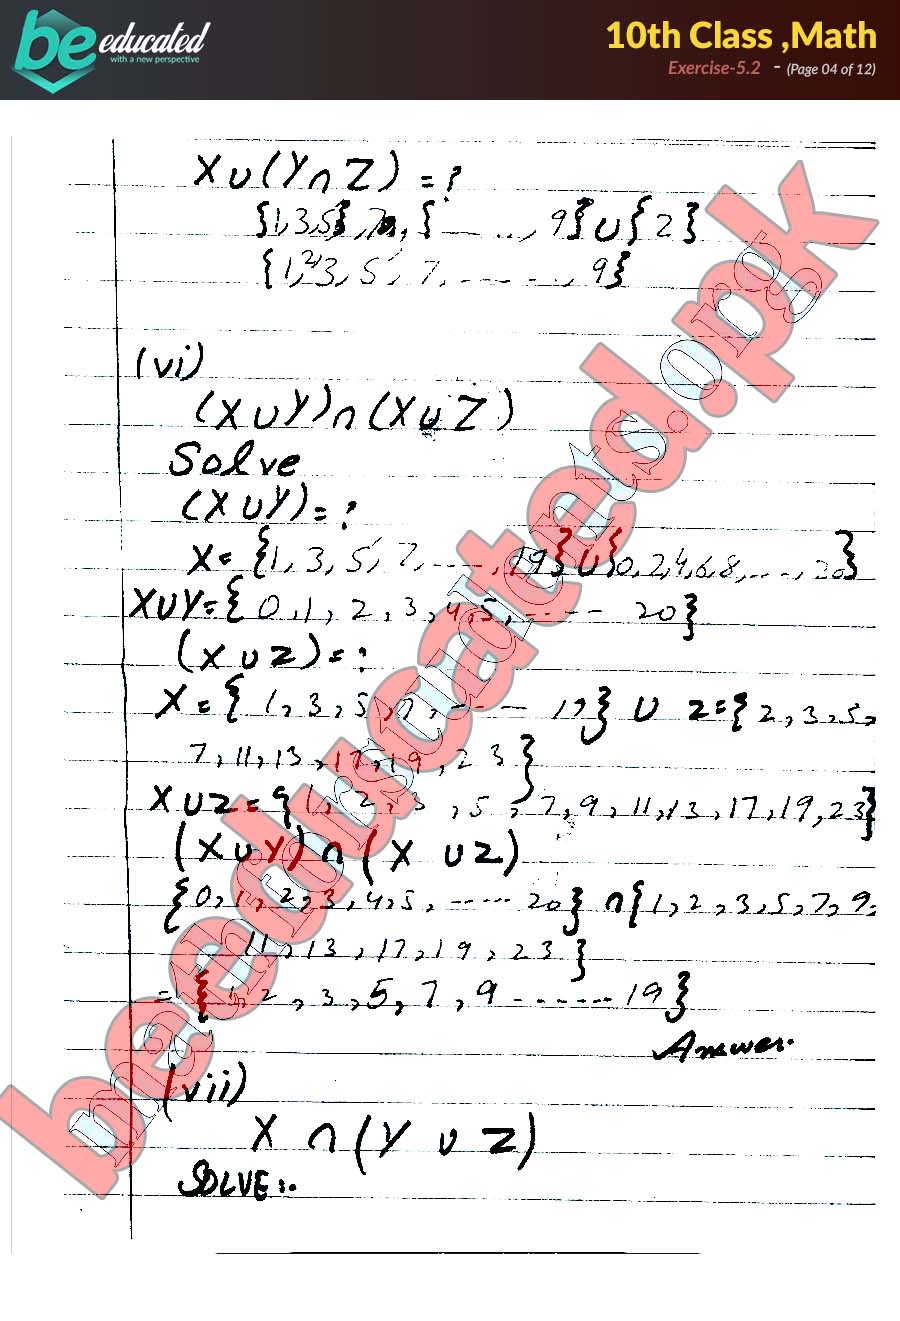 be educated
with a new perspective
10th Class ,Math
Exercise-5.2 - (Page 04 of 12)
X∪(Y∩Z) = ?
{1,3,5}, 7, { ......, 9} ∪ {2}
{1,2,3, 5, 7, ......., 9}
(vi)
(X∪Y)∩(X∪Z)
Solve
(X∪Y) = ?
X = {1, 3, 5, 7, ....., 19} ∪ {0,2,4,6,8,...., 20}
X∪Y = {0,1, 2, 3, 4,5, ------ 20}
(X∪Z) = ?
X = {1, 3, 5, 7, ---- 19} ∪ Z = {2, 3, 5,
7, 11, 13, 17, 19, 23}
X∪Z = {1, 2, 3, 5, 7, 9, 11, 13, 17, 19, 23}
(X∪Y)∩(X ∪Z)
{0, 1, 2, 3, 4, 5, ...... 20} ∩ {1, 2, 3, 5, 7, 9,
11, 13, 17, 19, 23}
= {1, 2, 3, 5, 7, 9 ------- 19}
Answer.
(vii)
X ∩ (Y ∪ Z)
SOLVE:.
beeducated.pk